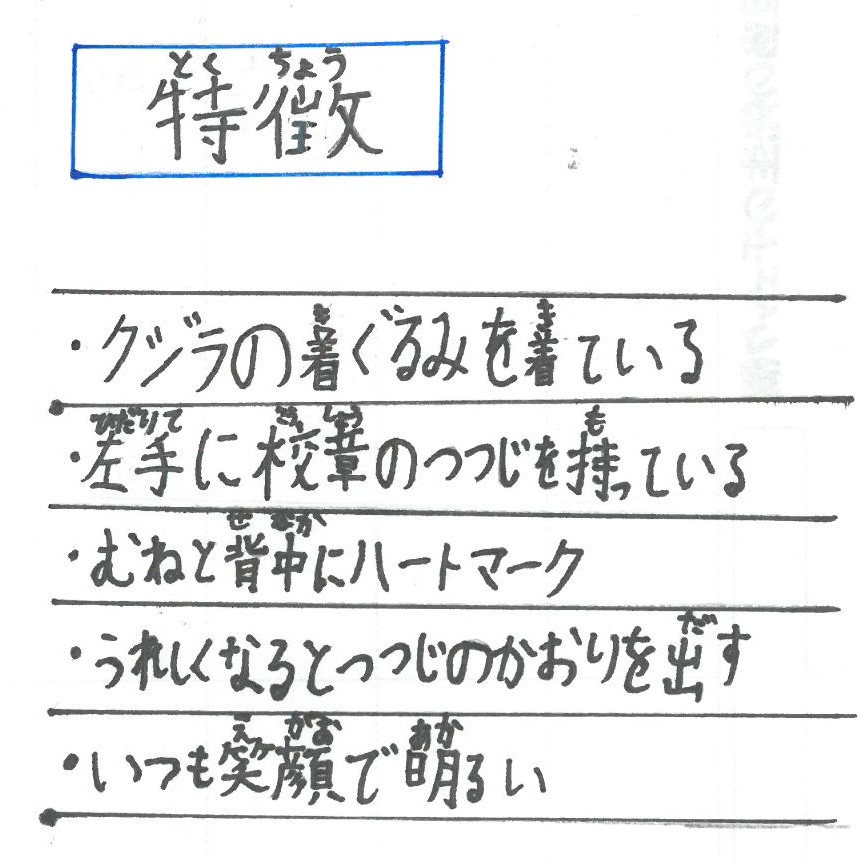 特徴
・クジラの着ぐるみを着ている
・左手に校章のつつじを持っている
・むねと背中にハートマーク
・うれしくなるとつつじのかおりを出す
・いつも笑顔で明るい